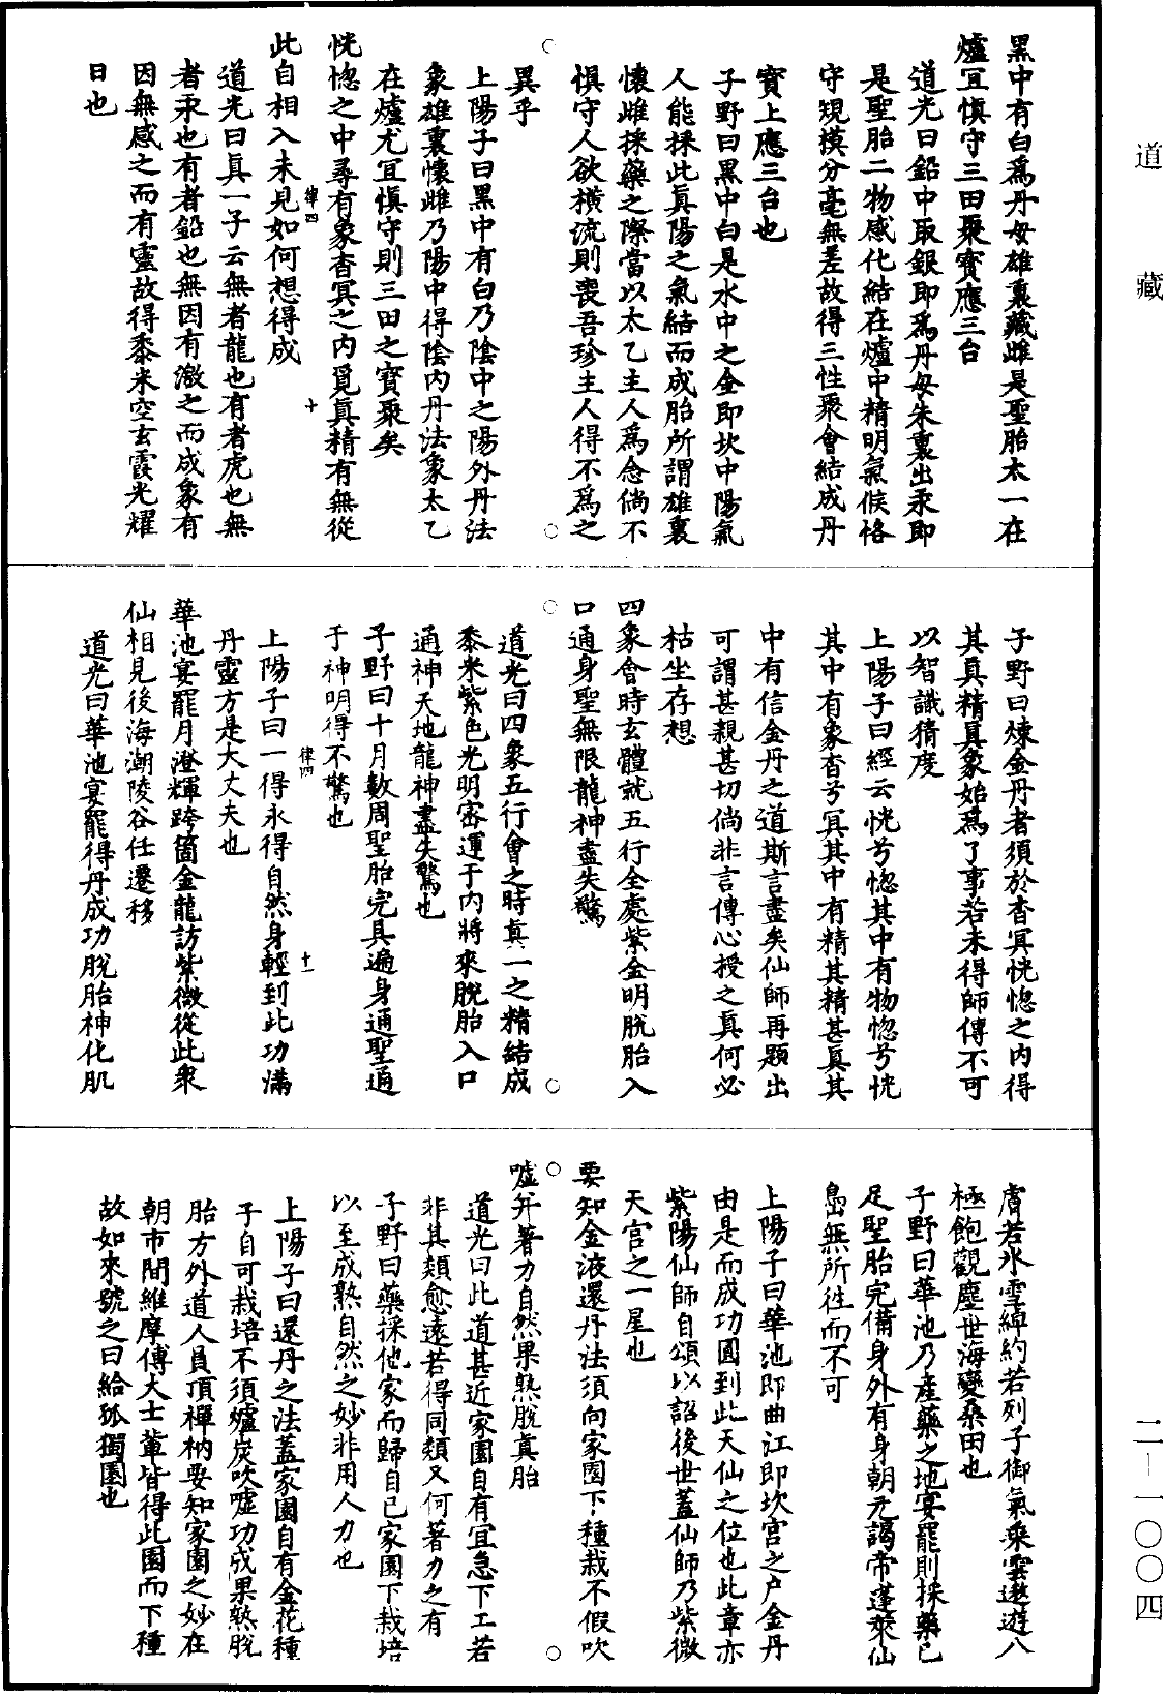 黑中有白爲丹母雄裏藏雌是聖胎太一在
爐宜慎守三田聚寶應三台
道光曰鉛中取銀即爲丹母朱裏出汞即
是聖胎二物感化結在爐中精明氣候恪
守規模分毫無差故得三性聚會結成丹
寳上應三台也
子野曰黑中白是水中之金即坎中陽氣
人能採此眞陽之氣結而成胎所謂雄裏
懷雌採藥之際當以太乙主人爲念倘不
慎守人欲橫流則喪吾珍主人得不爲之
異乎
上陽子曰黑中有白乃陰中之陽外丹法
象雄裏懷雌乃陽中得陰內丹法象太乙
在爐尤宜慎守則三田之寳聚矣
恍惚之中尋有象杳冥之內覓眞精有無從
律四 十
此自相入未見如何想得成
道光曰眞一子云無者龍也有者虎也無
者汞也有者鉛也無因有激之而成象有
因無感之而有靈故得黍米空玄霞光耀
日也
子野曰煉金丹者須於杳冥恍惚之内得
其眞精眞象始爲了事若未得師傳不可
以智識猜度
上陽子曰經云恍兮惚其中有物惚兮恍
其中有象杳兮冥其中有精其精甚眞其
中有信金丹之道斯言盡矣仙師再題出
可謂甚親甚切倘非言傳心授之眞何必
枯坐存想
四象會時玄體就五行全處紫金明脫胎入
口通身聖無限龍神盡失驚
道光曰四象五行會之時眞一之精結成
黍米紫色光明密運于内將來脫胎入口
通神天地龍神盡失驚也
子野曰十月數周聖胎完具遍身通聖通
于神明得不驚也
律四 十一
上陽子曰一得永得自然身輕到此功滿
丹靈方是大丈夫也
華池宴罷月澄輝跨箇金龍訪紫微從此衆
仙相見後海潮陵谷任遷移
道光曰華池宴罷得丹成功脫胎神化肌
膚若氷雪綽約若列子御氣乘雲遨遊八
極飽觀塵世海變桑田也
子野曰華池乃產藥之地宴罷則採藥已
足聖胎完備身外有身朝元謁帝蓬萊仙
島無所往而不可
上陽子曰華池即曲江即坎宮之户金丹
由是而成功圓到此天仙之位也此章亦
紫陽仙師自頌以詔後世蓋仙師乃紫微
天宮之一星也
要知金液還丹法須向家園下種栽不假吹
噓并著力自然果熟脫眞胎
道光曰此道甚近家園自有宜急下工若
非其類愈遠若得同類又何著力之有
子野曰藥採他家而歸自己家園下栽培
以至成熟自然之妙非用人力也
上陽子曰還丹之法蓋家園自有金花種
子自可栽培不須爐炭吹噓功成果熟脫
胎方外道人員頂禪衲要知家園之妙在
朝市間維摩傅大士軰皆得此園而下種
故如來號之曰給孤獨園也
道藏
二-一〇〇〇四